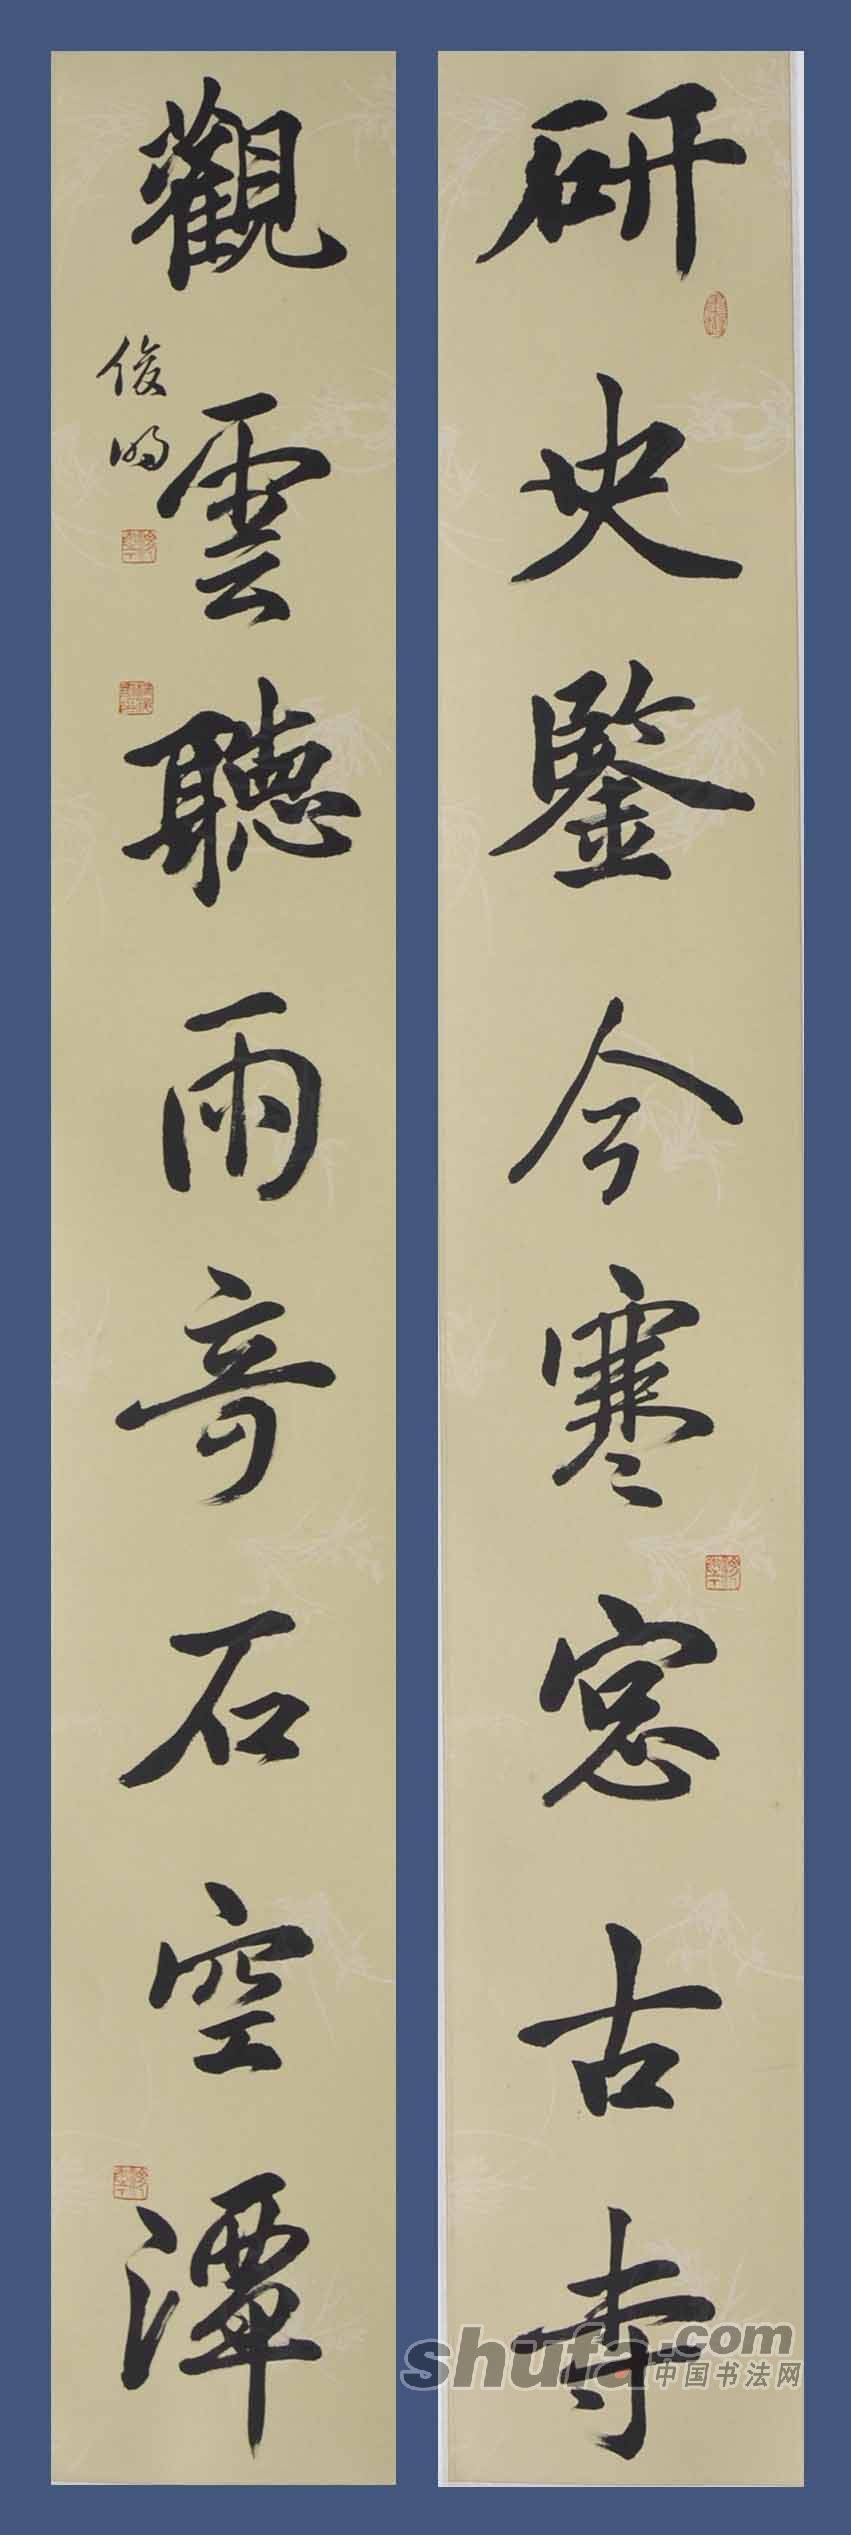 研史鑒今寒窓古寺
觀雲聽雨奇石空潭
俊明
shufa.com
中国书法网